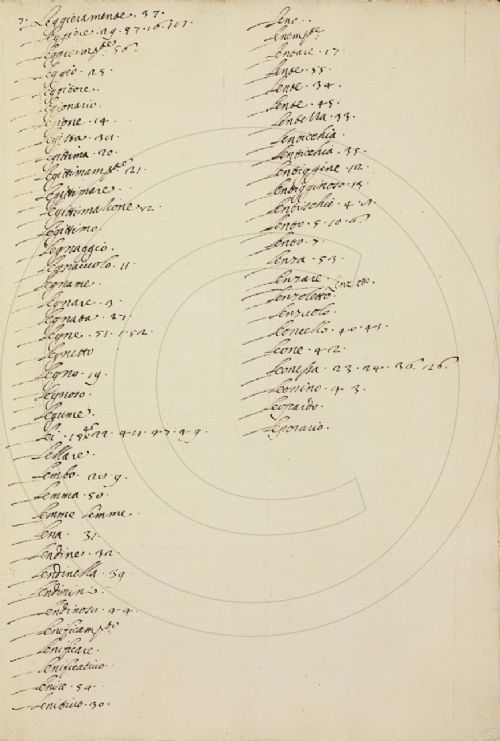 7. Leggieramente. 37.
Leggiere. 29. 37. 16. 101.
Leggierm.te 56.
Leggio. 25.
Leggitore.
Legionario.
Legione. 14.
Legista. 30.
Legittima. 20.
Legittimam.te 21.
Legittimare.
Legittimatione. 12.
Legittimo.
Legnaggio.
Legnaiuolo. 11.
Legname.
Legnare. 3.
Legnata. 31.
Legne. 51. 152.
Legnetto
Legno. 19.
Legnoso.
Legume.
Lei. 22. 44. 47. 49.
Lellare.
Lembo. 9.
Lemma. 50.
Lemme Lemme.
Lena. 31.
Lendine. 32.
Lendinella. 39.
Lendinini.
Lendinoso. 44.
Lenificam.to
Lenificare.
Lenificativo.
Lenire. 54.
Lenitivo. 30.
Leno.
Lenem.te
Lentare. 17.
Lente. 55.
Lente. 34.
Lente. 45.
Lentella. 33.
Lenticchia.
Lenticchia. 35.
Lentiggine. 12.
Lentigginoso. 15.
Lentischio. 4.
Lento. 5. 10. 6.
Lento. 7.
Lenza. 53.
Lenzare.
Lenzoletto.
Lenzuolo.
Leoncello. 40. 41.
Leone. 42.
Leonessa. 23. 24. 36. 26.
Leonino. 43.
Leopardo.
Leporario.